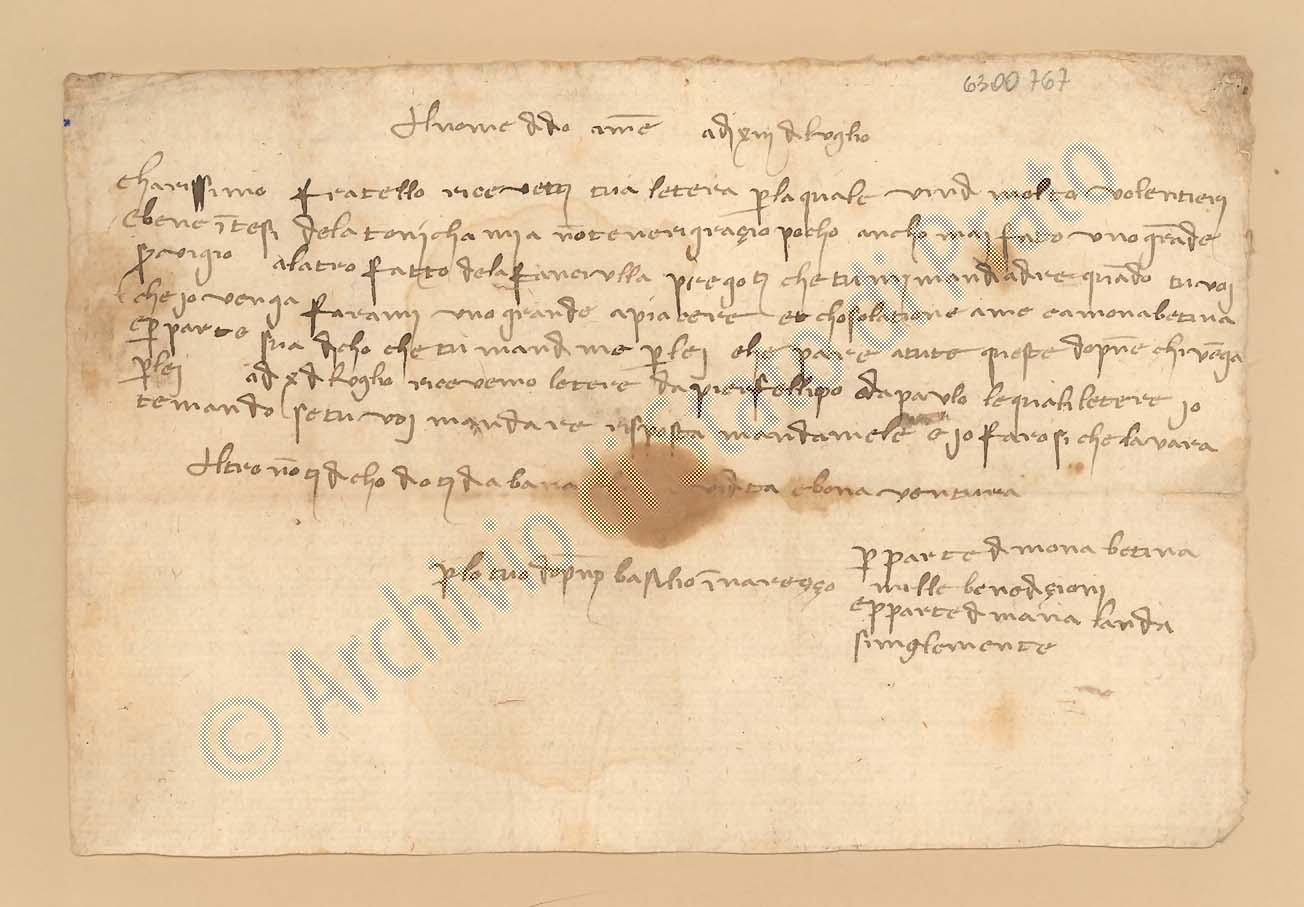 6300767
Al nome di dio ame adi xiii di luglio
charissimo fratello ricevetti tua letera p la quale vind molto volentieri
e bene ītesi dela tonicha mia nō tene rigraçio pocho ancho mai fatto uno grāde
servigio alatro fatto dela fanciulla pregoti che tu mi mandi a dire quādo tu voi
che io venga farami uno grande a piacere et chosolatione a me e a mona betina
e p parte sua dicho che tu mandi me p lei che pare a tute queste dopne chi vēga
p lei adi x di luglio ricevemo letere da pier fellipo e da pavlo le quali letere io
te mando se tu voi mandare risposta mandamele e io faro si che la vara
Altro nō ti dicho dio ti dia bona vita e bona ventura
p lo tuo basilio ī nareçço
p parte di mona betina
mille benediçioni
e p parte di maria landa
simiglemente
© Archivio di Stato di Prato